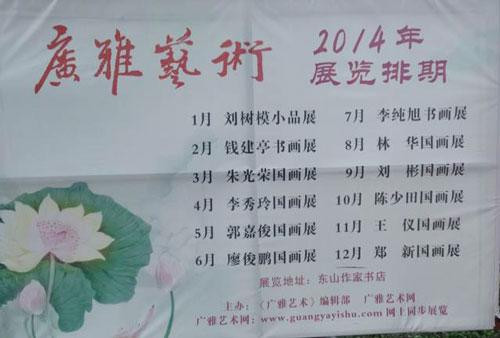 廣雅藝術
2014年
展览排期
1月 刘树模小品展
2月 钱建亭书画展
3月 朱光荣国画展
4月 李秀玲国画展
5月 郭嘉俊国画展
6月 廖俊鹏国画展
7月 李纯旭书画展
8月 林 华国画展
9月 刘 彬国画展
10月 陈少田国画展
11月 王 仪国画展
12月 郑 新国画展
展览地址：东山作家书店
主办：《广雅艺术》编辑部 广雅艺术网
广雅艺术网：www.guangyayishu.com 网上同步展览